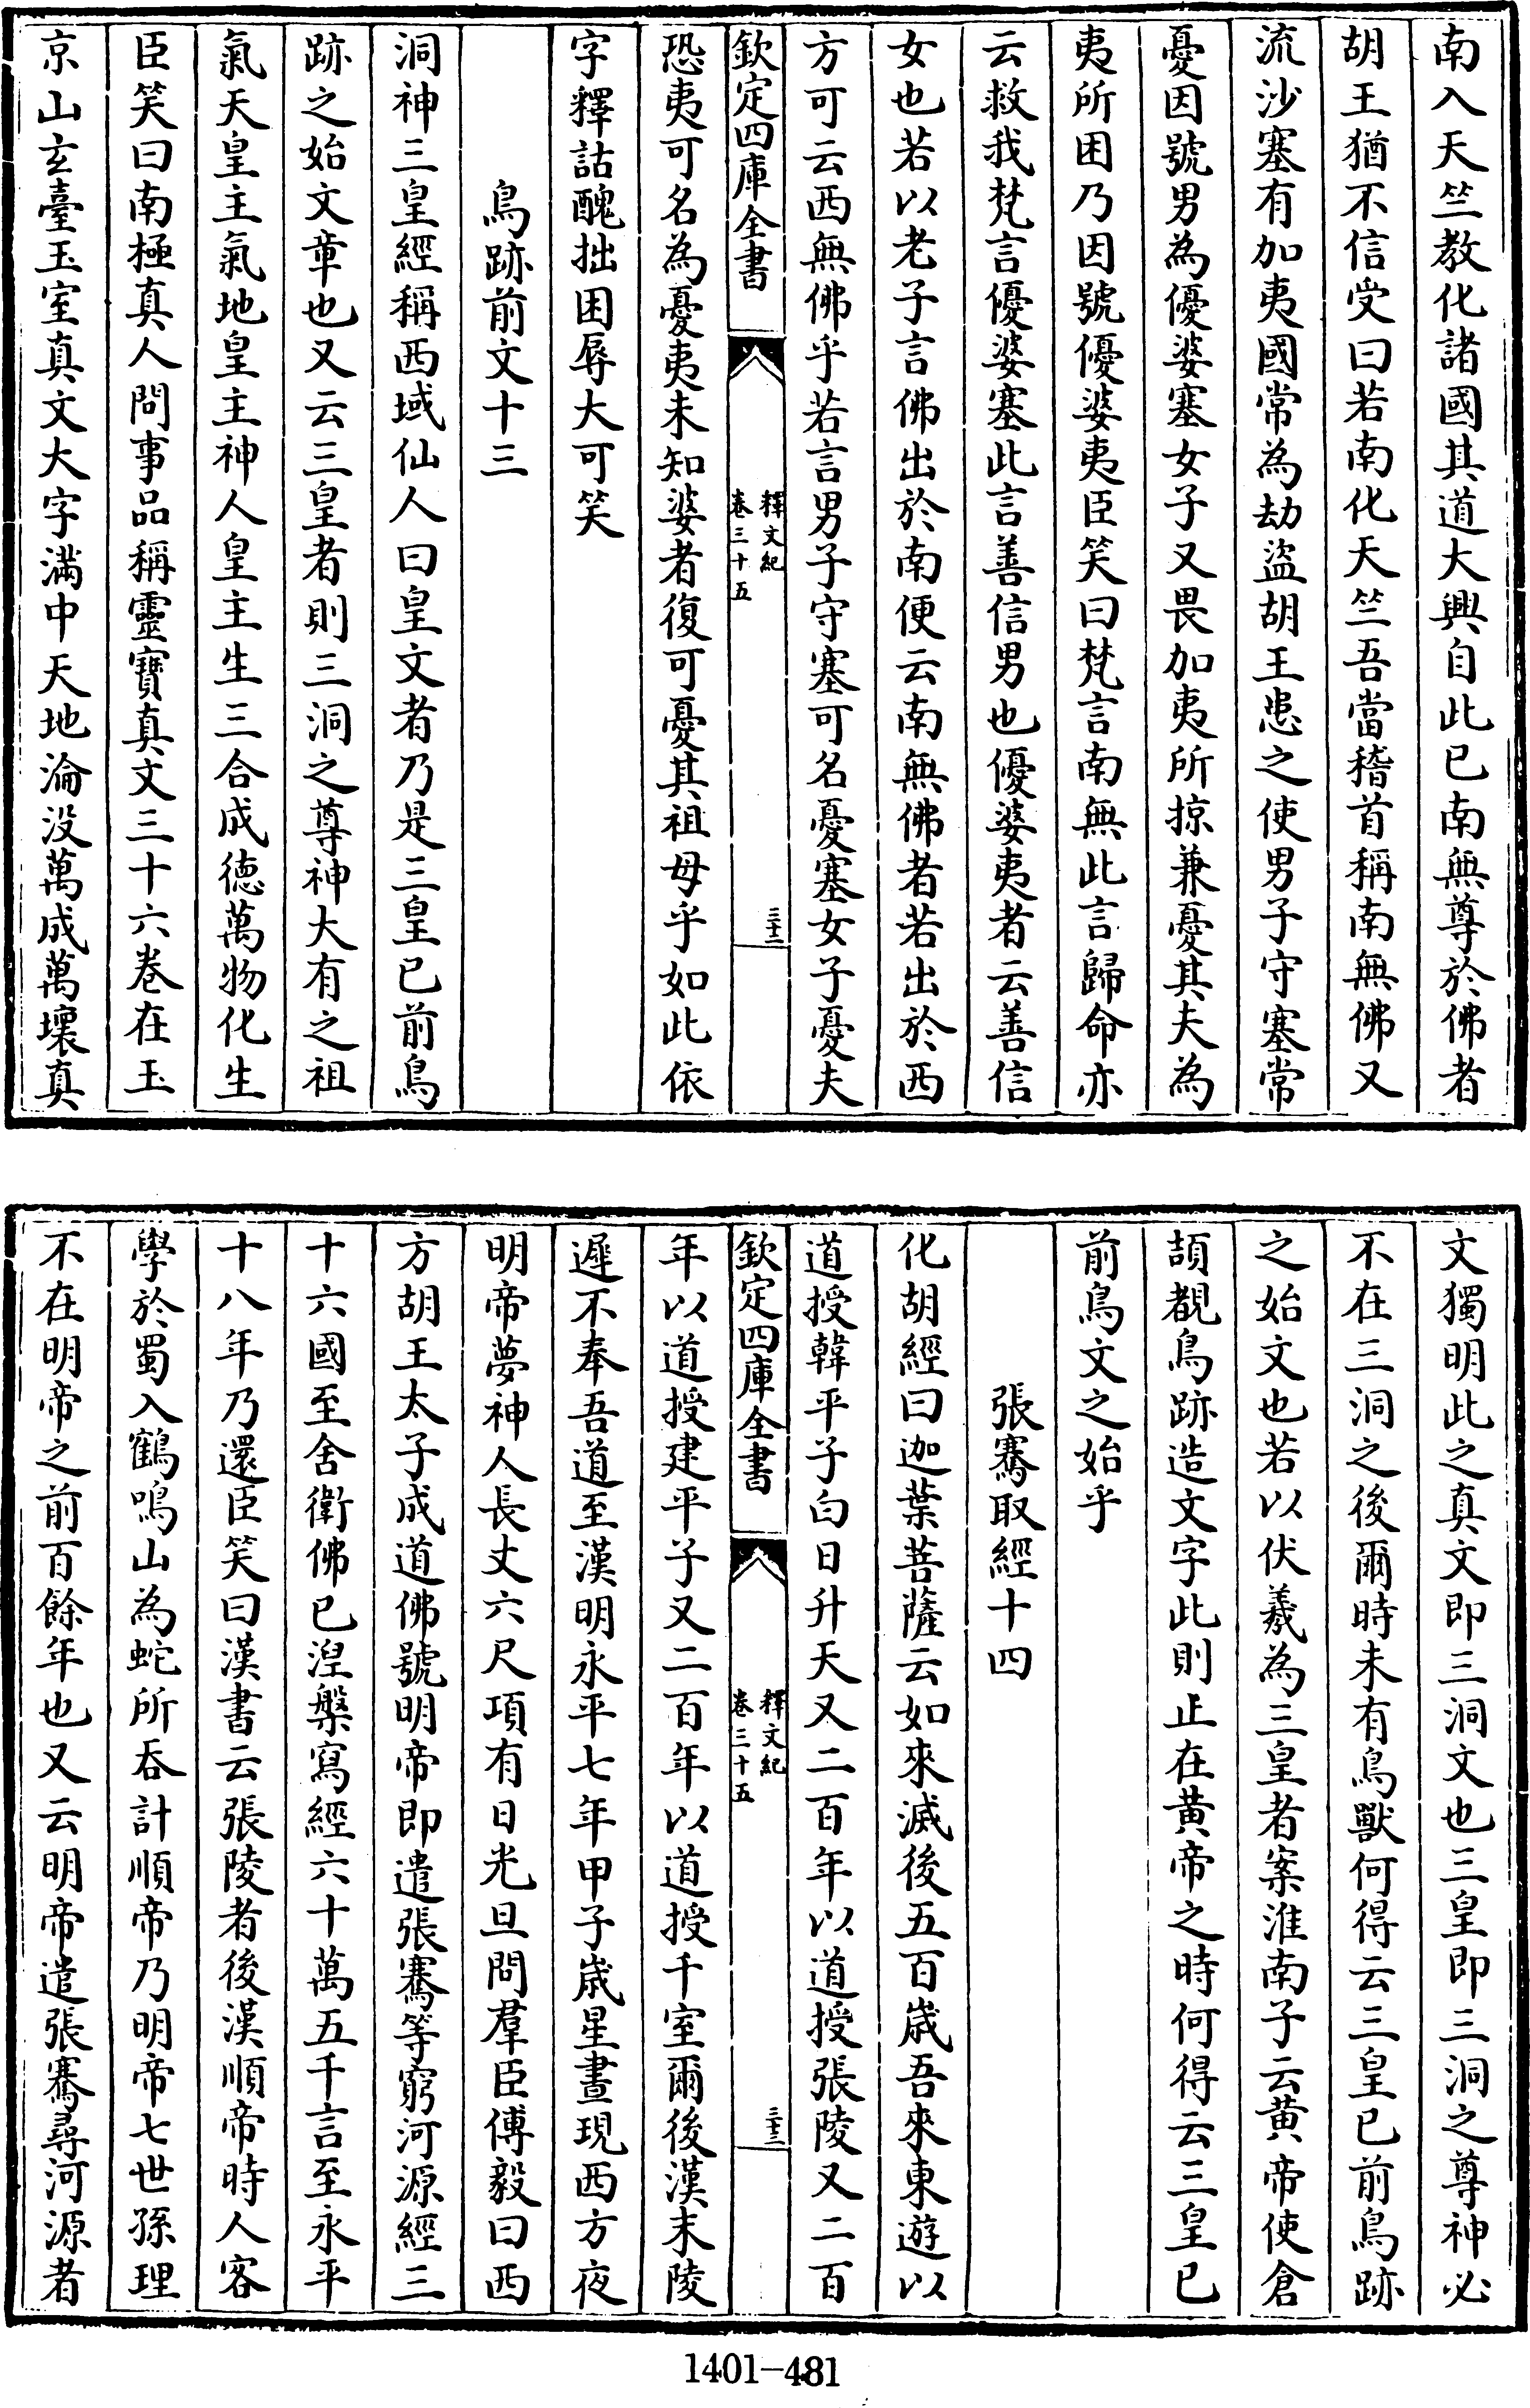 南入天竺教化諸國其道大興自此已南無尊於佛者
胡王猶不信受曰若南化天竺吾當稽首稱南無佛又
流沙塞有加夷國常為劫盜胡王患之使男子守塞常
憂因號男為優婆塞女子又畏加夷所掠兼憂其夫為
夷所困乃因號優婆夷臣笑曰梵言南無此言歸命亦
云救我梵言優婆塞此言善信男也優婆夷者云善信
女也若以老子言佛出於南便云南無佛者若出於西
方可云西無佛乎若言男子守塞可名憂塞女子憂夫
欽定四庫全書
釋文紀
卷三十五
三十二
恐夷可名為憂夷未知婆者復可憂其祖母乎如此依
字釋詁醜拙困辱大可笑
鳥跡前文十三
洞神三皇經稱西域仙人曰皇文者乃是三皇已前鳥
跡之始文章也又云三皇者則三洞之尊神大有之祖
氣天皇主氣地皇主神人皇主生三合成德萬物化生
臣笑曰南極真人問事品稱靈寶真文三十六卷在玉
京山玄臺玉室真文大字滿中天地淪没萬成萬壞真
文獨明此之真文即三洞文也三皇即三洞之尊神必
不在三洞之後爾時未有鳥獸何得云三皇已前鳥跡
之始文也若以伏羲為三皇者案淮南子云黄帝使倉
頡覩鳥跡造文字此則止在黄帝之時何得云三皇已
前鳥文之始乎
張騫取經十四
化胡經曰迦葉菩薩云如來滅後五百歳吾來東遊以
道授韓平子白日升天又二百年以道授張陵又二百
欽定四庫全書
釋文紀
卷三十五
三十三
年以道授建平子又二百年以道授千室爾後漢末陵
遲不奉吾道至漢明永平七年甲子歳星晝現西方夜
明帝夢神人長丈六尺項有日光旦問羣臣傅毅曰西
方胡王太子成道佛號明帝即遣張騫等窮河源經三
十六國至舍衛佛已涅槃寫經六十萬五千言至永平
十八年乃還臣笑曰漢書云張陵者後漢順帝時人客
學於蜀入鶴鳴山為蛇所吞計順帝乃明帝七世孫理
不在明帝之前百餘年也又云明帝遣張騫尋河源者
1401-481